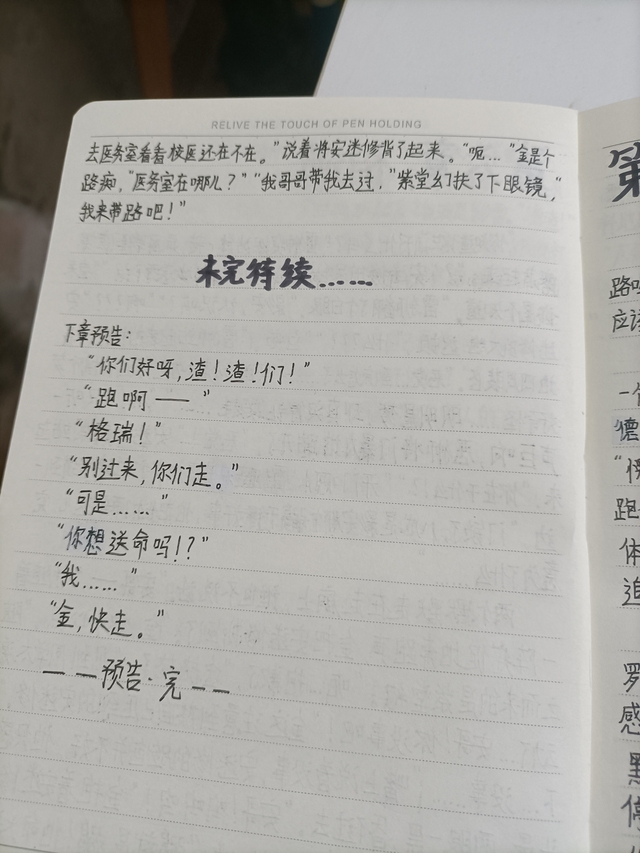 RELIVE THE TOUCH OF PEN HOLDING
去医务室看看校医还在不在。”说着将安迷修背了起来。“呃…”金是个
路痴,“医务室在哪儿？”“我哥哥带我去过,”紫堂幻扶了下眼镜,“
我来带路吧！”
未完待续……
下章预告：
“你们好呀,渣！渣！们！”
“跑啊——”
“格瑞！”
“别过来,你们走。”
“可是……”
“你想送命吗!？”
“我……”
“金,快走。”
——预告·完——
第
路
应该
一
德
跑
体
追
罗
感
默
停